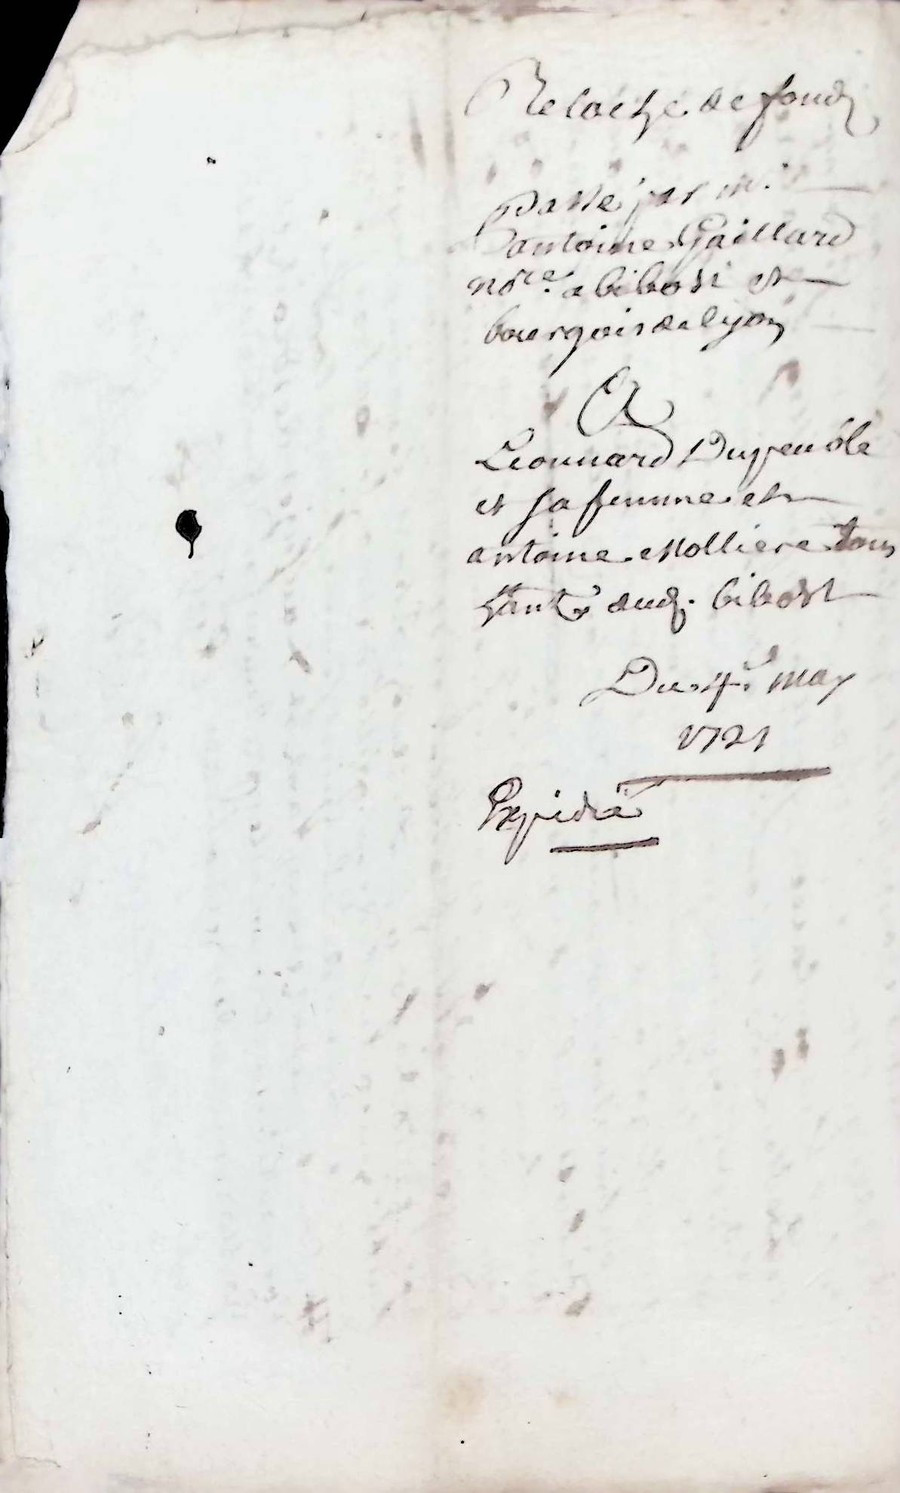 Relache de fond
Passé par m.e
antoine Gaillard
no.re a bibost et
bourgois de lyon
A
Leonnard Dupeuble
et sa femme et
antoine Molliere tous
dud. bibost
Du 4.e may
1721
Expedié